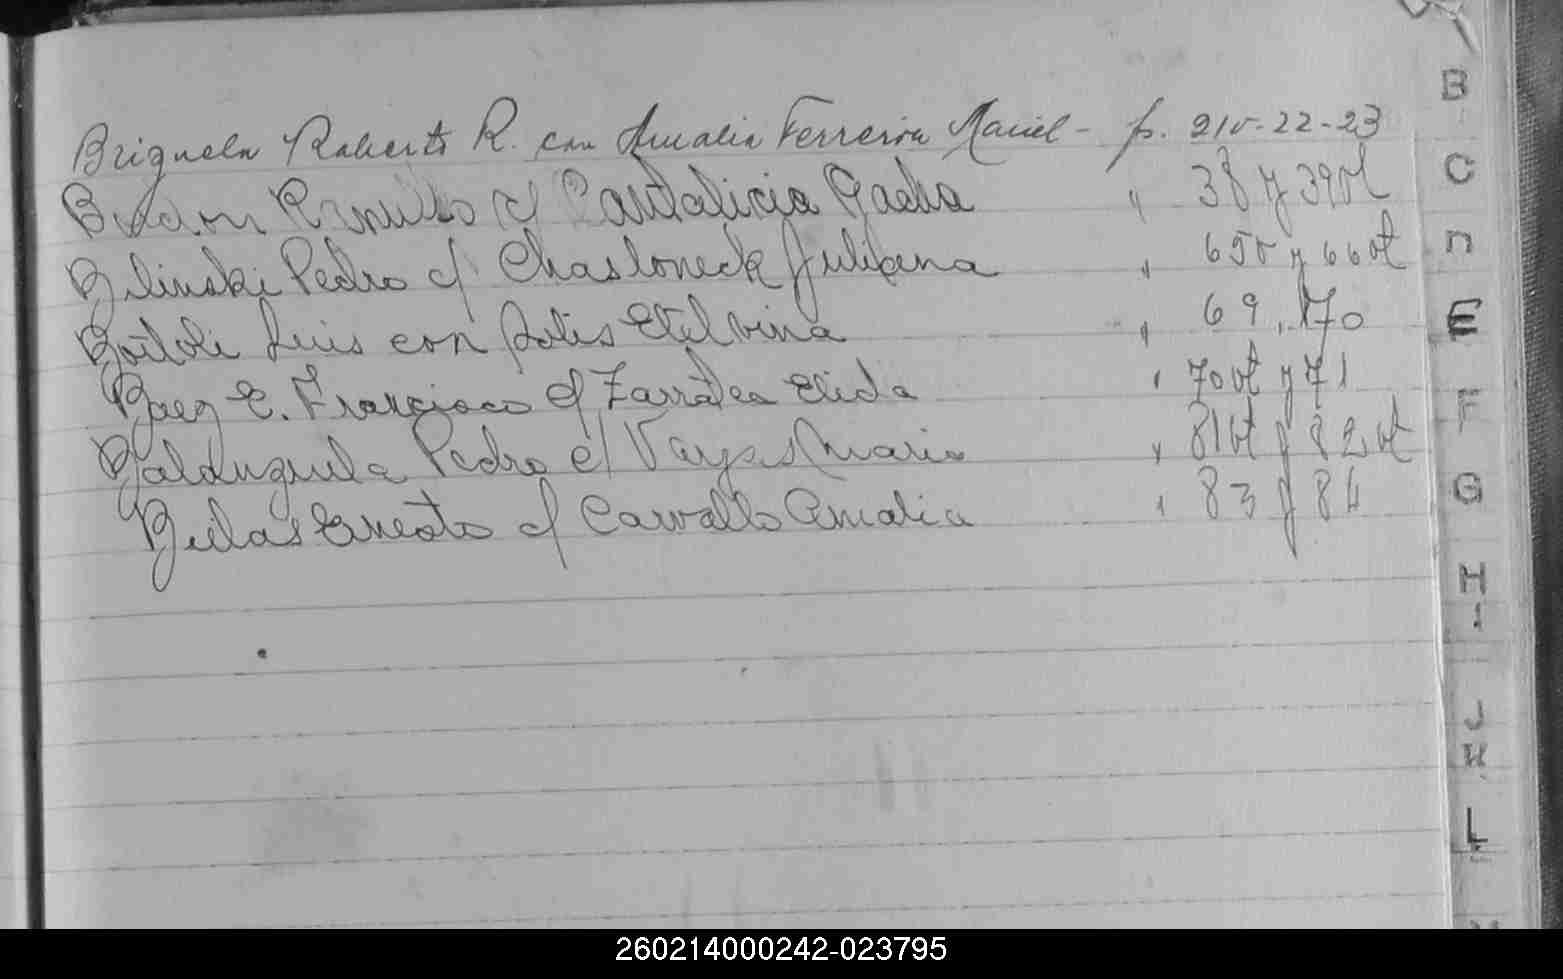 Briguela Roberto R. con Amalia Ferreira Maciel - p. 21v-22-23
Ramulto c/ Cantalicia Gadea " 38 y 39vt
Bilinski Pedro c/ Chasloneck Juliana " 65v y 66vt
Luis con Solis Etelvina " 69, 70
Baez E. Francisco c/ Zarratea Elida " 70vt y 71
Balduzuela Pedro c/ Maria " 81vt y 82vt
Ernesto c/ Carvallo Amalia " 83 y 84
B
C
D
E
F
G
H
I
J
K
L
260214000242-023795